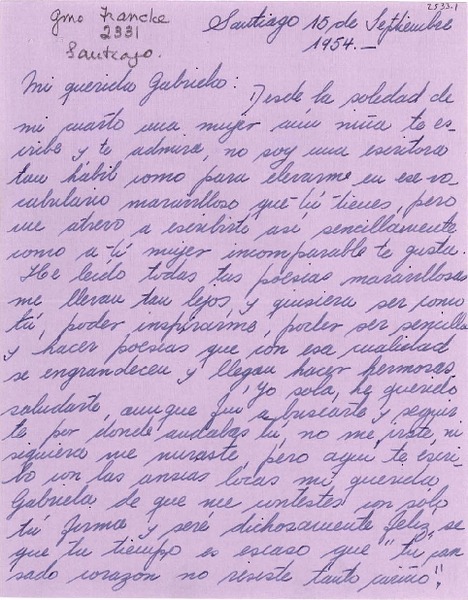 2533.1
Gmo Francke
2331
Santiago.
Santiago 15 de Septiembre
1954.—
Mi querida Gabriela:
Desde la soledad de
mi cuarto una mujer aun niña te es-
cribe y te admira, no soy una escritora
tan hábil como para elevarme en ese vo-
cabulario maravilloso que tú tienes, pero
me atrevo a escribirte así, sencillamente
como a tí mujer incomparable te gusta.
He leído todas tus poesías maravillosas
me llevan tan lejos, y quisiera ser como
tú, poder inspirarme, poder ser sencilla
y hacer poesías que con esa cualidad
se engrandecen y llegan hacer hermosas.
Yo sola, he querido
saludarte, aunque fui a buscarte y seguir
te por donde andabas tú, no me viste, ni
siquiera me miraste, pero aquí te escri-
bo con las ansias locas mi querida
Gabriela de que me contestes con solo
tú firma y seré dichosamente feliz, se
que tu tiempo es escaso que "tu can
sado corazón no resiste tanto cariño"!